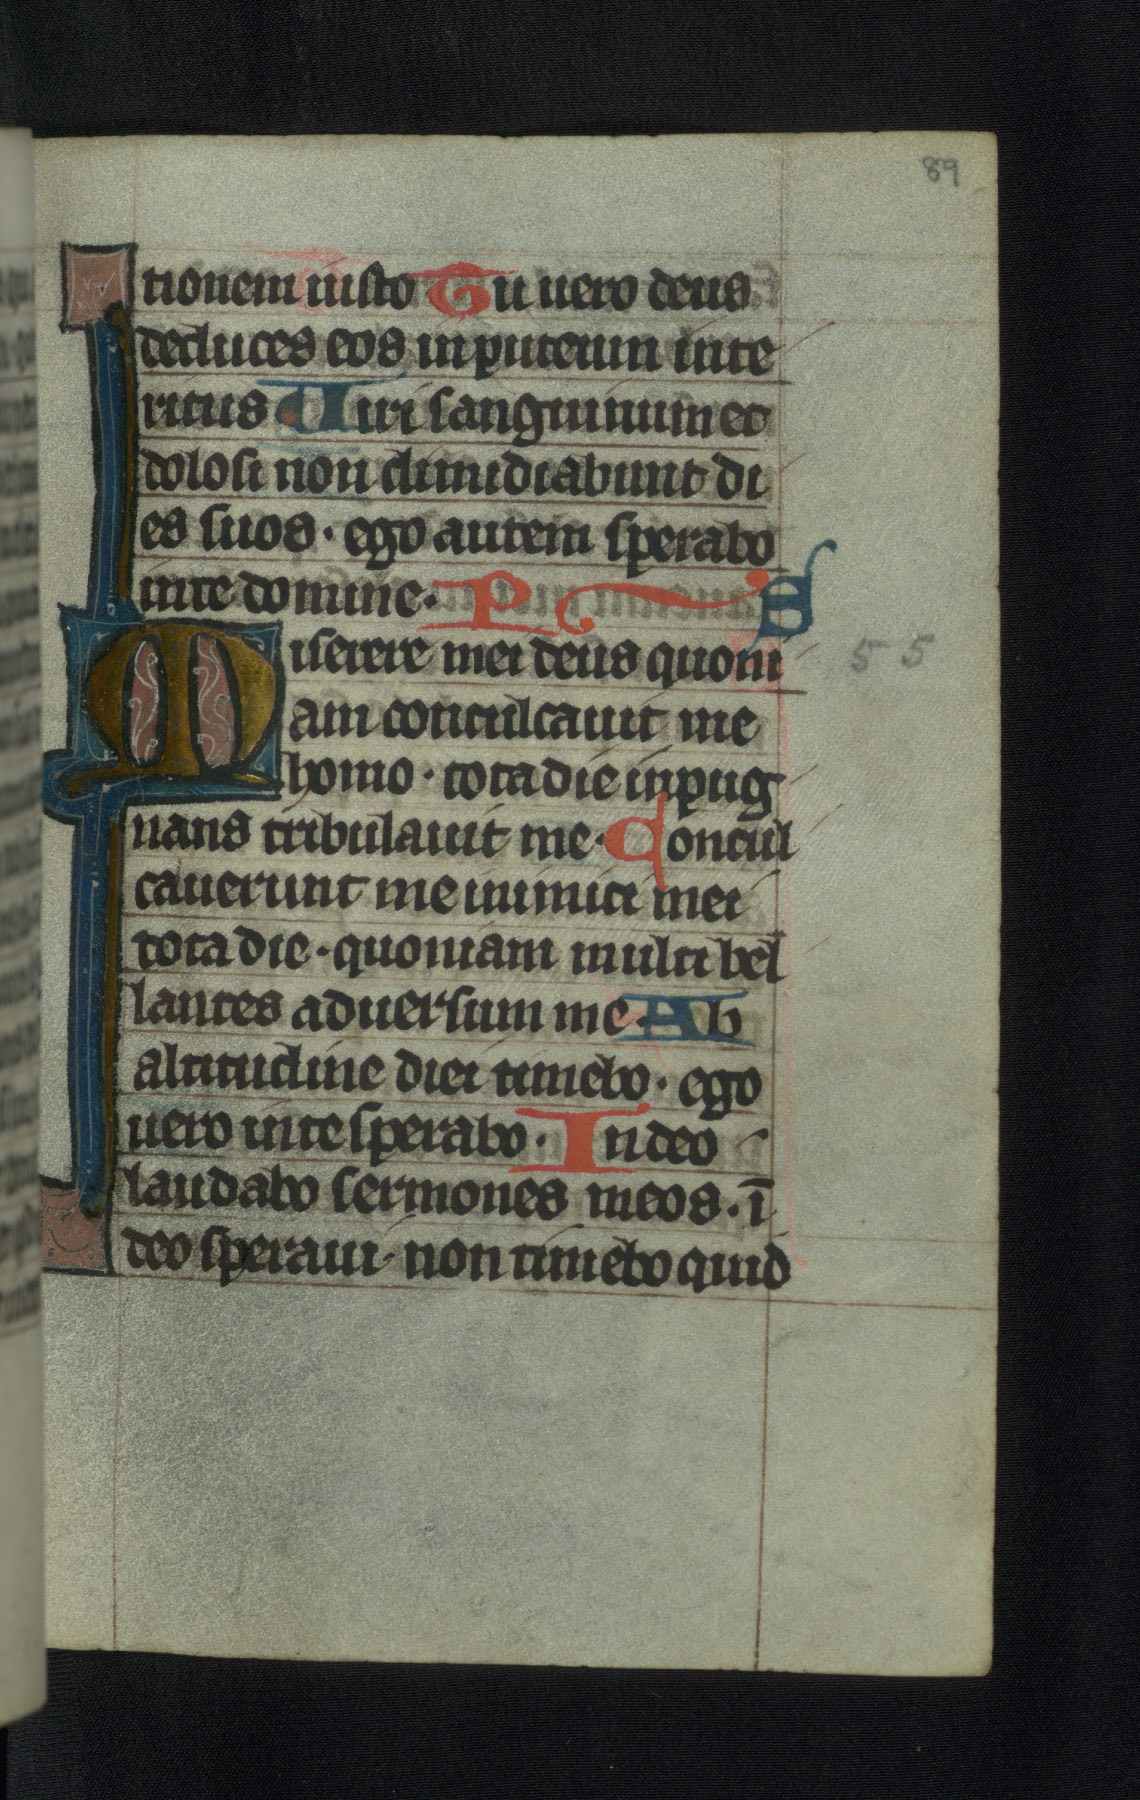 89
tionem iusto Tu uero deus
deduces eos in puteum inte
ritus Uiri sanguinum et
dolosi non dimidiabunt di
es suos · ego autem sperabo
in te domine · P S
Miserere mei deus quoni
55
am conculcauit me
homo · tota die inpug
nans tribulauit me · Concul
cauerunt me inimici mei
tota die · quoniam multi bel
lantes aduersum me · Ab
altitudine diei timebo · ego
uero in te sperabo · In deo
laudabo sermones meos · ī
deo speraui · non timebo quid